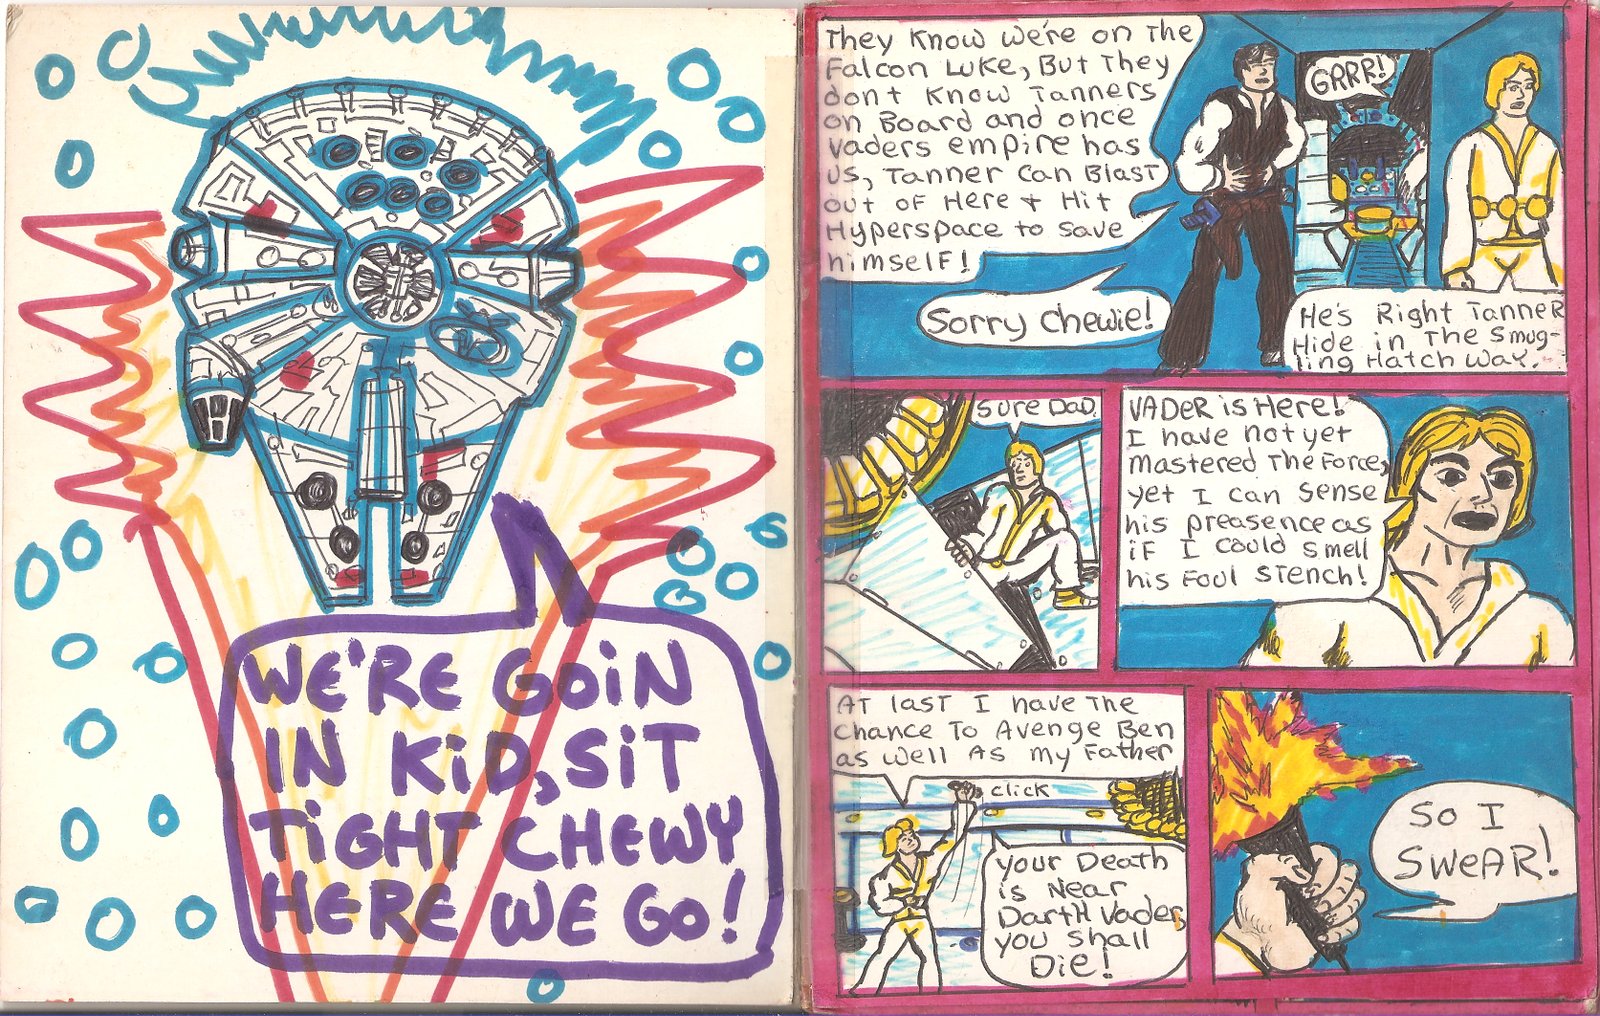 WE'RE GOiN
IN KiD, SiT
TiGHT CHEWY
HERE WE GO!
They Know we're on The
Falcon Luke, But They
don't Know Tanners
on Board and once
Vaders empire has
us, Tanner Can Blast
out of Here & Hit
Hyperspace to save
himself!
GRRR!
Sorry Chewie!
He's Right Tanner
Hide in The Smug-
ling Hatch Way.
Sure Dad.
VADer is Here!
I have not yet
mastered The Force,
yet I can sense
his preasence as
if I could smell
his Foul Stench!
At last I have The
Chance To Avenge Ben
as well As my Father
click
your Death
is Near
Darth Vader,
you shall
Die!
So I
SweAR!